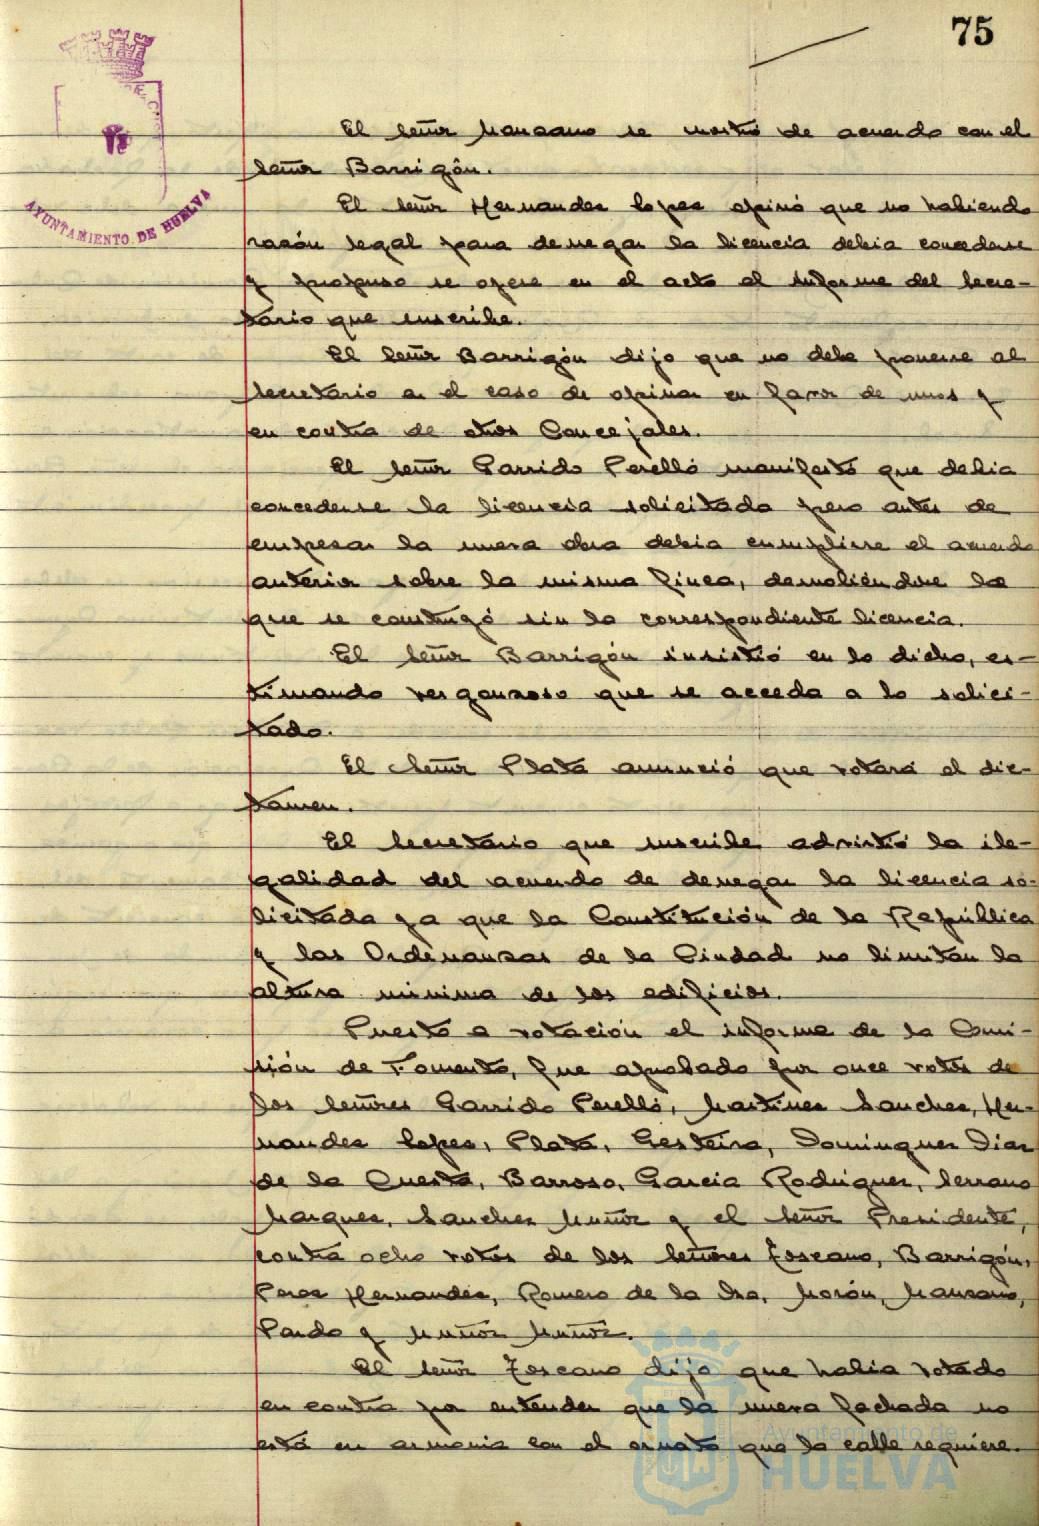 75
AYUNTAMIENTO DE HUELVA
El señor Manzano se mostró de acuerdo con el
señor Barrigón.
El señor Hernandez Lopez opinó que no habiendo
razón legal para denegar la licencia debia concederse
y propuso se oyera en el acto el informe del Secre-
tario que suscribe.
El señor Barrigón dijo que no debe ponerse al
Secretario en el caso de opinar en favor de unos y
en contra de otros Concejales.
El señor Garrido Perelló manifestó que debia
concederse la licencia solicitada pero antes de
empezar la nueva obra debia cumplirse el acuerdo
anterior sobre la misma finca, demoliéndose lo
que se construyó sin la correspondiente licencia.
El señor Barrigón insistió en lo dicho, es-
timando vergonzoso que se acceda a lo solici-
tado.
El señor Plata anunció que votará el dic-
tamen.
El Secretario que suscribe advirtió la ile-
galidad del acuerdo de denegar la licencia so-
licitada ya que la Constitución de la República
y las Ordenanzas de la Ciudad no limitan la
altura minima de los edificios.
Puesto a votación el informe de la Comi-
sión de Fomento, fue aprobado por once votos de
los señores Garrido Perelló, Martinez Sanchez, Her-
nandez Lopez, Plata, Gesteira, Dominguez Diaz
de la Cuesta, Barroso, Garcia Rodriguez, Serrano
Marquez, Sanchez Muñoz y el señor Presidente,
contra ocho votos de los señores Toscano, Barrigón,
Perez Hernandez, Romero de la Isa, Morón, Manzano,
Pardo y Muñoz Muñoz.
El señor Toscano dijo que habia votado
en contra por entender que la nueva fachada no
está en armonia con el ornato que la calle requiere.
Ayuntamiento de
HUELVA